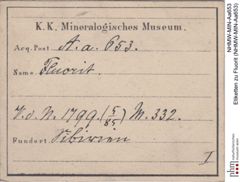 K. K. Mineralogisches Museum.
Acq. Post A. a. 653.
Name Fluorit.
V. d. N. 1799. (5/85) M. 332.
Fundort Sibirien
I
NHMW-MIN-Aa653
Etiketten zu Fluorit (NHMW-MIN-Aa653)
nhm